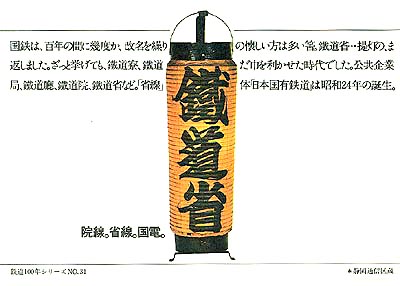 国鉄は、百年の間に幾度か、改名を繰り
返しました。ざっと挙げても、鐵道寮、鐵道
局、鐵道廳、鐵道院、鐵道省など。「省線」
の懐しい方は多い筈。鐵道省…提灯の、ま
だ巾を利かせた時代でした。公共企業
体『日本国有鉄道』は昭和24年の誕生。
鐵道省
院線。省線。国電。
鉄道100年シリーズNO.31
*静岡通信区蔵